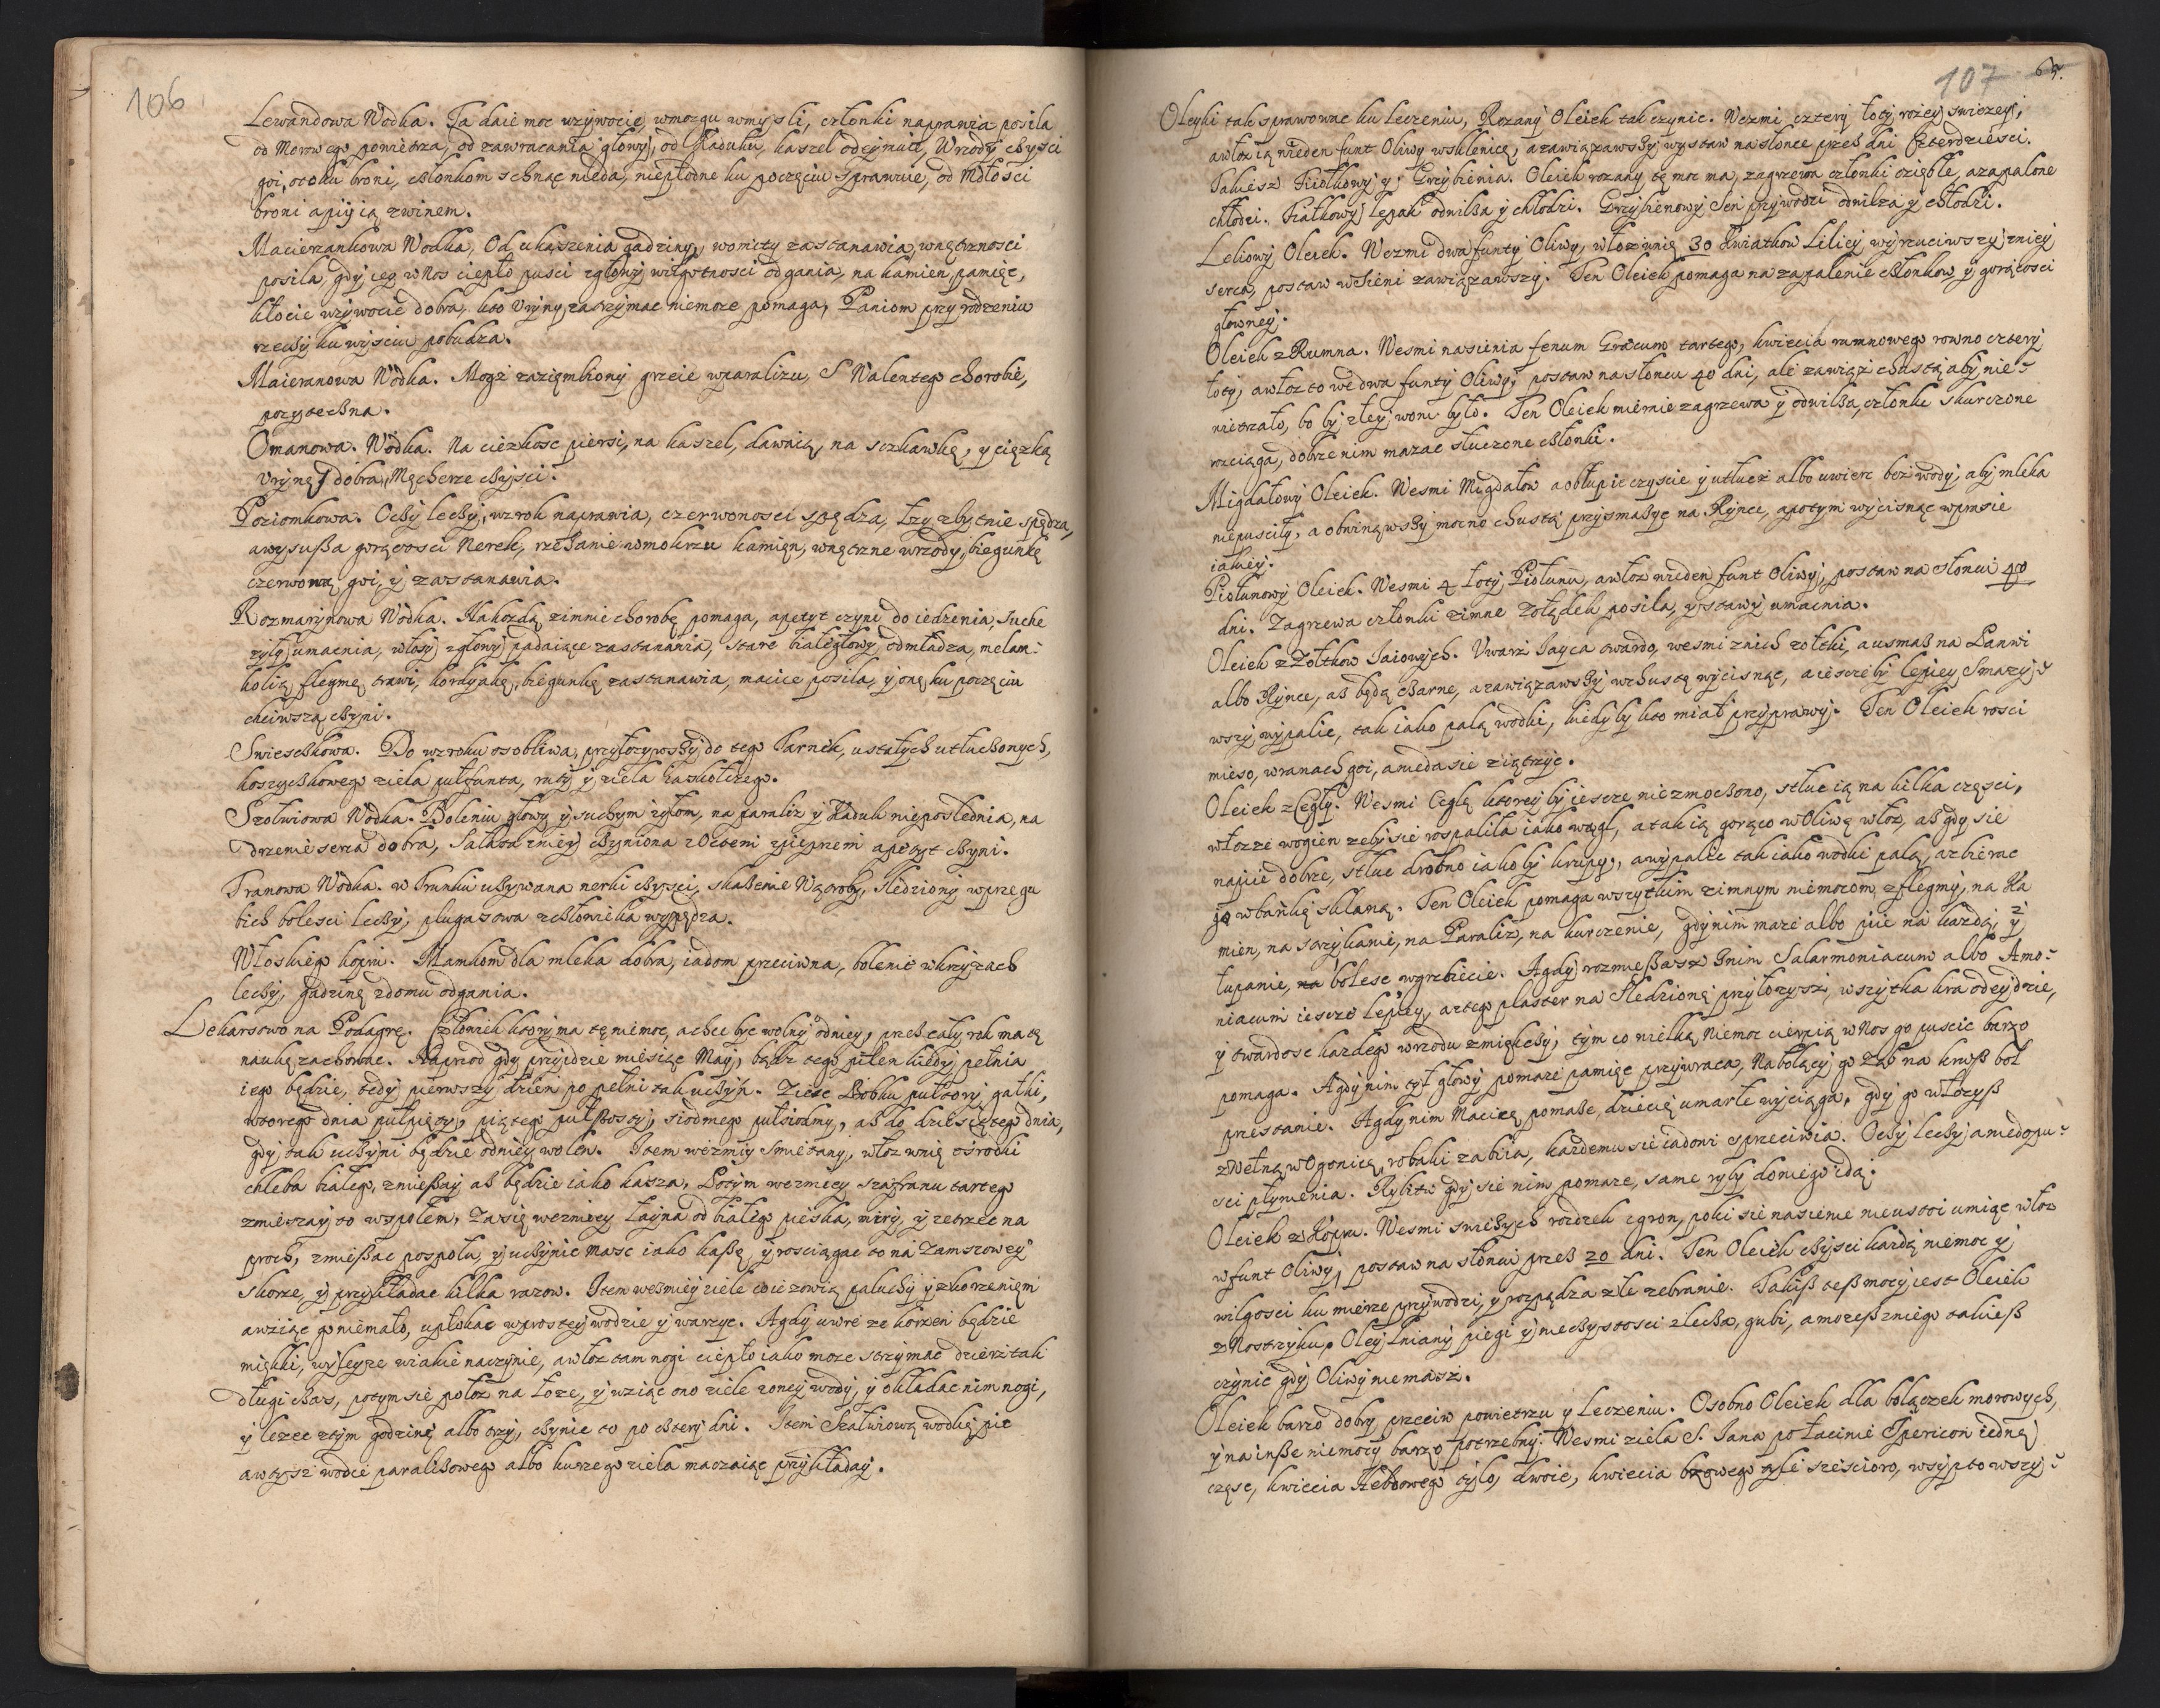 106
Lewandowa Wodka. Ta daie moc wzywocie, wmozgu wmysli, członki naprawia posila
od Morowego powietrza, od zawracania głowy, od Kaduku, kaszel odeymuie, Wrzody czysci
goi, otoku broni, członkom schnąc nieda, niepłodne ku poczęciu sprawuie, od Mdłosci
broni a piy ią zwinem.
Macierzankowa Wodka, Od ukąszenia gadziny, womity zastanawia, wnętrznosci
posila, gdy iey wNos ciepło pusci zgłowy wilgotnosci odgania, na kamien, pamięc,
kłocie wzywocie dobra, kto Uryny zatrzymac niemoze pomaga, Paniom przy rodzeniu
rzeczy ku wysciu pobudza.
Maieranowa Wodka. Mozg zaziembiony grzeie wparalizu, S Walentego chorobie,
pozyteczna.
Omanowa. Wodka. Na ciezkosc piersi, na kaszel, dawnicę, na szkawkę, y cięzką
Urynę dobra, Męcherze czysci.
Poziomkowa. Oczy leczy, wzrok naprawia, czerwonosci spędza, łzy zbytnie spędza,
a wysusza gorącosci Nerek, rzezanie wmokrzu kamięn, wnętrzne wrzody, biegunkę
czerwoną goi, y zastanawia.
Rozmarynowa Wodka. Na kozdą zimnie chorobę pomaga, apetyt czyni do iedzenia, suche
zyły umacnia, włosy zgłowy padaiące zastanawia, stare białęgłowy odmładza, melam-
kolią flegmę trawi, kordyakę, biegunkę zastanawia, macice posila, y onę ku poczęciu
chciwszą czyni.
Swieczkowa. Do wzroku osobliwa, przyłozywszy do tego Tarnek, ustałych utłuczonych,
koszyczkowego ziela pułfunta, ruty y ziela Iaskołczego.
Szołwiowa Wodka. Boleniu głowy y suchym zyłom, na paraliz y Kaduk nieposlednia, na
drzenie serca dobra, Sałata zniey czyniona zOctem zpieprzem apetyt czyni.
Tranowa Wodka. w Trunku uzywana nerki czysci, skazenie Wątroby, sledziony wprzegu
bich bolesci leczy, plugastwa zczłowieka wypędza.
Włoskiego kopru. Mamkom dla mleka dobra, iadom przeciwna, bolenie wkrzyzach
leczy, gadzinę zdomu odgania.
Lekarstwo na Podagrę. Człowiek ktory ma tę niemoc, a chce byc wolny odniey, przez cały rok ma tę
naukę zachowac. Naprzod gdy przyidzie miesiąc May, bądz tego pilen kiedy pełnia
iego będzie, tedy pierwszy dzien po pełni tak uczyn. Ziesc Bobku pułtory gałki,
wtorego dnia pułpięty, piątego pułszosty, siodmego pułsiodmy, asz do dziesiątego dnia,
gdy tak uczyni będzie odniey wolen. Item wezmiy smietany, włoz wnię osrodki
chleba białego, zmieszay asz będzie iako kasza, Potym wezmiey szafranu tartego
zmieszay to wspołem, Zasię wezmiey łayna od białego pieska, miry, y zetrzec na
proch, zmieszac pospołu, y uczynic masc iako kaszę, y rosciągac to na Zamszowey
skorze, y przykładac kilka razow. Item wezmiey ziele co ie zowią paluchy y zkorzeniem
a wziąc go niemało, upłokac wprostey wodzie y warzyc. A gdy uwre ze korzen będzie
miękki, wyleyze wiakie naczynie, a włoz tam nogi ciepło iako moze strzymac dzierz tak
długi czas, potym się połoz na łoze, y wziąc ono ziele zoney wody, y okładac nim nogi,
y lezec ztym godzinę albo trzy, czynic to po cztery dni. Item Szałwiową wodkę pic
a wtysz wodce paraliszowego albo kurzego ziela maczaiąc przykładay.
107 67.
Oleyki tak sprawowac ku Leczeniu, Rozany Oleiek tak czynic. Wezmi cztery łoty rozey swiezey,
a włoz ią wieden funt Oliwy wsklenicę, a zawiązawszy wystaw na słonce przez dni Czterdziesci.
Takiesz Fiołkowy y Grzybienia. Oleiek rozany tę moc ma, zagrzewa członki oziębłe, a zapalone
chłodzi. Fiałkowy lepak odwilza y chłodzi. Grzybienowy Sen przywodzi odwilza y chłodzi.
Leliowy Oleiek. Wezmi dwa funty Oliwy, włoz wnię 30 Kwiatkow Liliey wyrzuciwszy zniey
serca, postaw wsieni zawiązawszy. Ten Oleiek pomaga na zapalenie członkow, y gorącosci
głowney.
Oleiek zRumna. Wesmi nasienia fenum Græcum tartego, kwiecia rumnowego rowno cztery
łoty, a włoz to we dwa funty Oliwy, postaw na słoncu 40 dni, ale zawiąz chustą aby nie-
wietrzało, bo by złey woni było. Ten Oleiek miernie zagrzewa y odwilza, członki skurczone
rozciąga, dobrze nim mazac stłuczone członki.
Migdałowy Oleiek. Wesmi Migdałow a obłup ie czyscie y utłucz albo uwierc bez wody, aby mleka
niepusciły, a obwinąwszy mocno chustą przysmazyc na Rynce, a potym wycisnąc wprasie
iakiey.
Piołunowy Oleiek. Wesmi 4 łoty Piołunu, a włoz wieden funt Oliwy, postaw na słoncu 40
dni. Zagrzewa członki zimne Zołądek posila, y stawy umacnia.
Oleiek zZołtkow Iaiowych. Uwarz Iayca twardo, wesmi znich zołtki, a usmaz na Panwi
albo Rynce, asz będą czarne, a zawiązawszy wchustę wycisnąc, a ieszcze by lepiey Smazy-
wszy wypalic, tak iako palą wodki, kiedy by kto miał przyprawy. Ten Oleiek rosci
mieso, wranach goi, a nieda sie ziątrzyc.
Oleiek zCegły. Wesmi Cegłę ktorey by iescze niezmoczono, stłuc ią na kilka częsci,
włozze wogien zeby sie rospaliła iako węgl, a tak ią gorąco wOliwę włoz, asz gdy sie
napiie dobrze, stłuc drobno iako by krupy, a wypalic tak iako wodki palą, a zbierac
go wbańkę sklaną. Ten Oleiek pomaga wszytkim zimnym niemocom, zflegmy, na Ka
mien, na strzykanie, na Paraliz, na kurczenie, gdy nim maze albo piie na kazdą y
łupanie, bolesc wgrzbiecie. A gdy rozmieszasz znim Salarmoniacum albo Amo-
niacum iescze lepiey, a z tego plaster na Sledzionę przyłozysz, wszytka kra odeydzie,
y twardosc kazdego wrzodu zmiękczy, tym co wielką Niemoc cierpią wNos go puscic barzo
pomaga. A gdy nim tył głowy pomaze pamięc przywraca, Na bolący go Ząb na krusz bol
przestanie. A gdy nim Macicę pomaze, dziecię umarłe wyciąga, gdy go włozysz
zWełną wOgonicę, robaki zabiia, kazdemu sie iadowi sprzeciwia. Oczy leczy a niedopu-
sci płynienia. Rybitw gdy sie nim pomaze, same ryby doniego idą.
Oleiek zKopru. Wesmi swiezych rozdzek zgron, poki sie nasienie nieustoi umiąc włoz
wfunt Oliwy, postaw na słoncu przez 20 dni. Ten Oleiek czysci kazdą niemoc y
wilgosci ku mierze przywodzi, y rozpądza złe zebranie. Takisz tesz mocy iest Oleiek
zNostrzyku, Oley Lniany piegi y nieczystosci zleka, gubi, a mozesz zniego takiesz
czynic gdy Oliwy niemasz.
Oleiek barzo dobry przeciw powietrzu y Leczeniu. Osobno Oleiek dla bolączek morowych,
y na insze niemocy barzo potrzebny. Wesmi ziela S. Iana po łacinie Ipericon iednę
częsc, kwiecia Hebdowego tylo, dwoie, kwiecia bzowego tyle sescioro, wsyp to wszy-